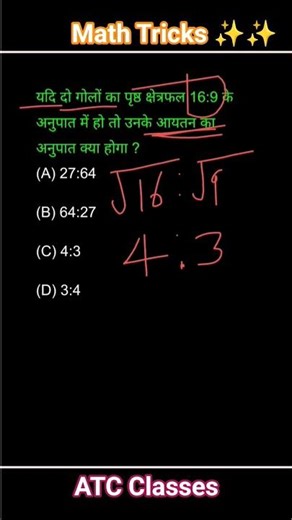 Math Tricks ✨✨
यदि दो गोलों का पृष्ठ क्षेत्रफल 16:9 के
अनुपात में हो तो उनके आयतन का
अनुपात क्या होगा ?
(A) 27:64
√16 : √9
(B) 64:27
(C) 4:3
4 : 3
(D) 3:4
ATC Classes